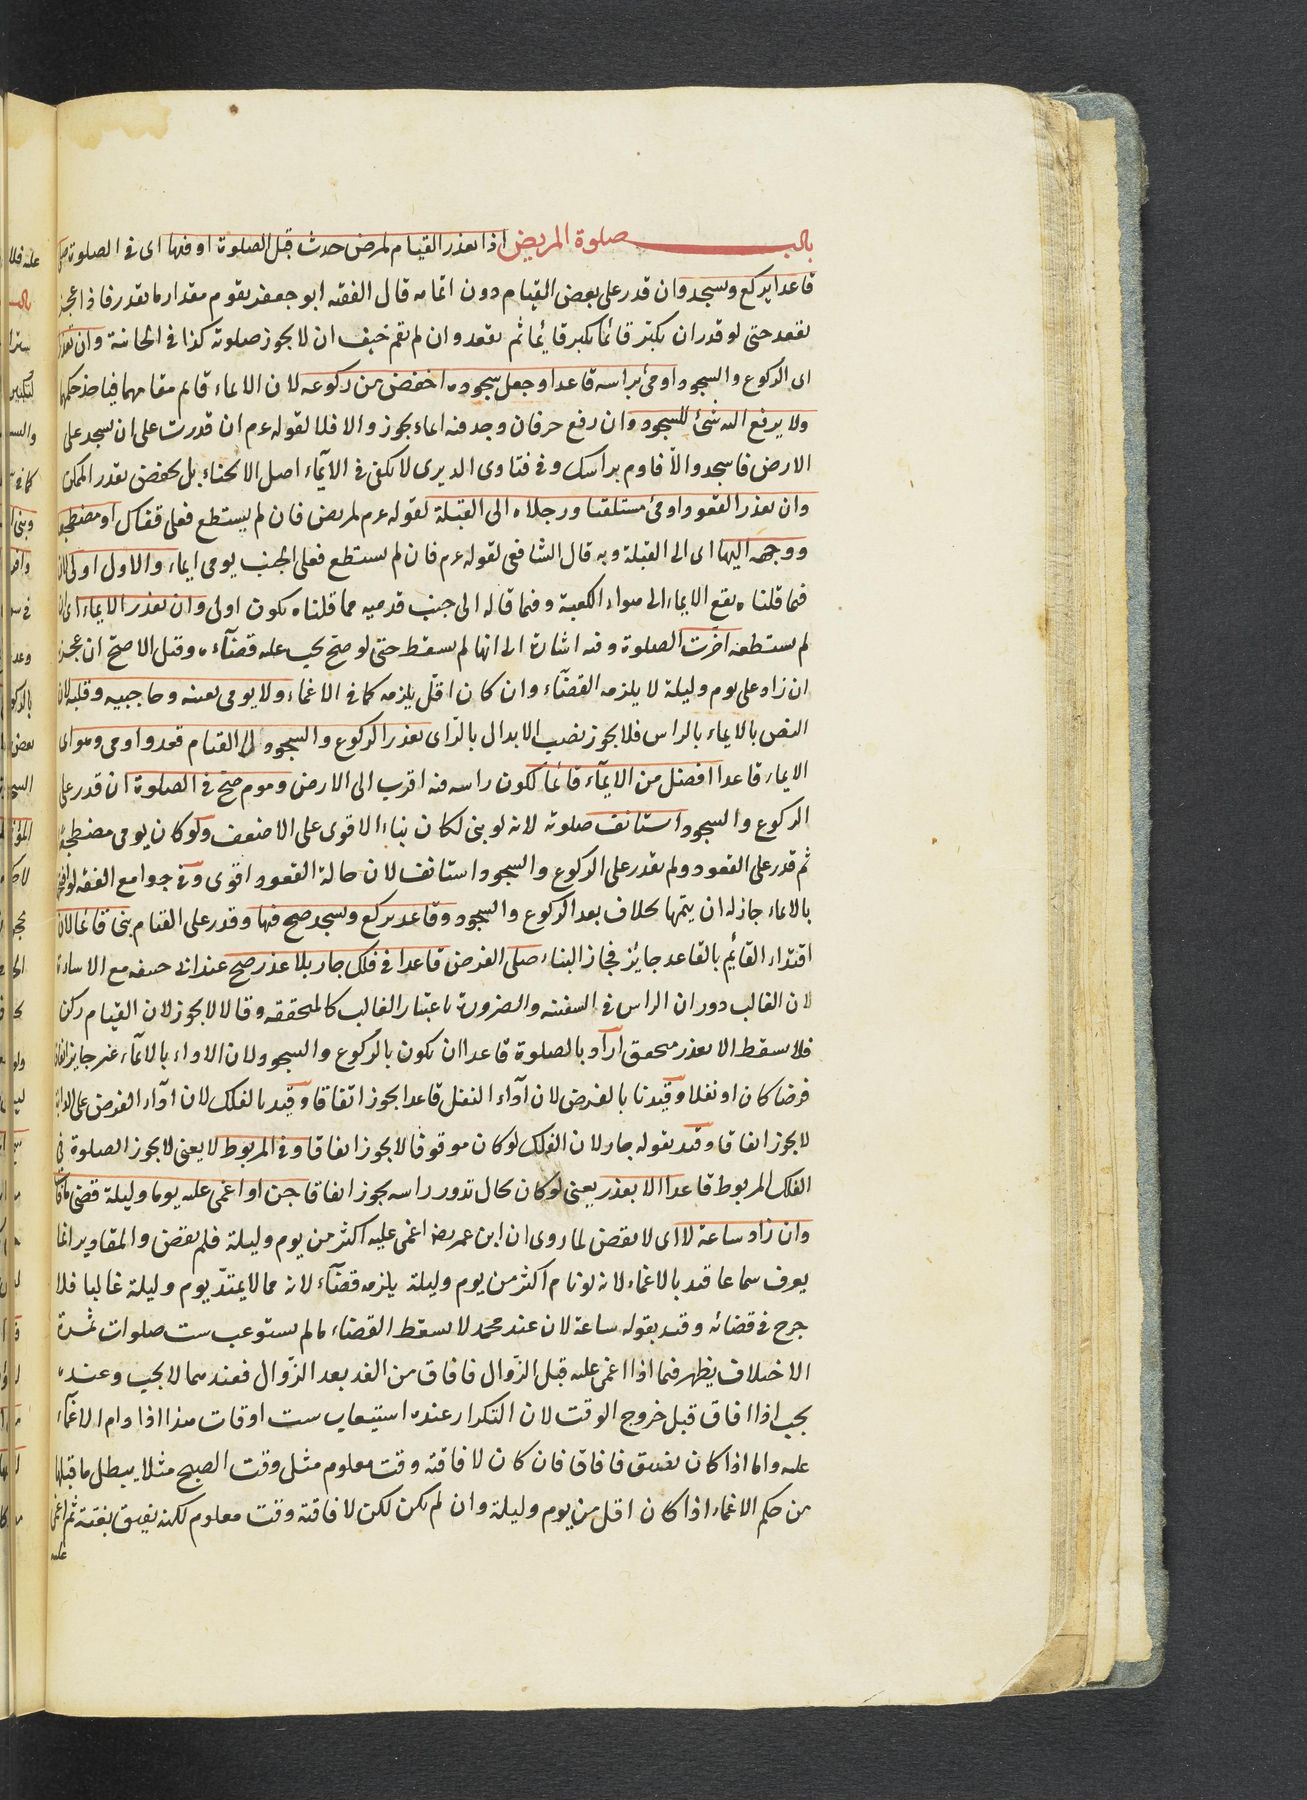 باب صلوة المريض اذا تعذر القيام لمرض حدث قبل الصلوة او فيها اى فى الصلوة صلى
قاعدا يركع ويسجد وان قدر على بعض القيام دون اتمامه قال الفقيه ابو جعفر يقوم مقدار ما يقدر فاذا عجز
يقعد حتى لو قدر ان يكبر قائما يكبر قائيما ثم يقعد وان لم يقم خيف ان لا يجوز صلوته كذا فى الخانية وان تعذرا
اى الركوع والسجود اومئ براسه قاعدا وجعل سجوده اخفض من ركوعه لان الايماء قايم مقامهما فياخذ حكمهما
ولا يرفع اليه شئ للسجود وان رفع حر فان وجد منه ايماء يجوز والا فلا لقوله عم ان قدرت على ان تسجد على
الارض فاسجد والا فاوم براسك وفى فتاوى الديرى لا يكفى فى الايماء اصل الانحناء بل يخفض بقدر الممكن
وان تعذر القعود اومئ مستلقيا ورجلاه الى القبلة لقوله عم لمريض فان لم يستطع فعلى قفاك او مضطجعا
ووجهه اليها اى الى القبلة وبه قال الشافعى لقوله عم فان لم يستطع فعلى الجنب يومى ايماء والاول اولى لان
فيما قلناه يقع الايماء الى هواء الكعبة وفيما قاله الى جنب قدميه مما قلناه يكون اولى وان تعذر الايماء اى ان
لم يستطعه اخرت الصلوة وفيه اشارة الى انها لم يسقط حتى لو صح يجب عليه قضاءه وقيل الاصح ان عجز
ان زاد على يوم وليلة لا يلزمه القضاء وان كان اقل يلزمه كما فى الاغماء ولا يومى بعينه وحاجبيه وقلبه لان
النص بالايماء بالراس فلا يجوز نصب الابدال بالراى تعذر الركوع والسجود لا القيام قعد واومى وهو اى
الايماء قاعدا افضل من الايماء قائما لكون راسه فيه اقرب الى الارض وموم صح فى الصلوة ان قدر على
الركوع والسجود استانف صلوته لانه لو بنى لكان بناء الاقوى على الاضعف ولو كان يومى مضطجعا
ثم قدر على القعود ولم يقدر على الركوع والسجود استانف لان حالة القعود اقوى وفى جوامع الفقه لو افتتح
بالايماء جاز له ان يتمها بخلاف بعد الركوع والسجود وقاعد يركع ويسجد صح فيها وقدر على القيام بنى قائما لان
اقتداء القائيم بالقاعد جايز فجاز البناء صلى الفرض قاعدا فى فلك جار بلا عذر صح عند ابى حنيفه مع الاساءة
لان الغالب دوران الراس فى السفينه والضرورة باعتبار الغالب كالمتحققه وقالا لا يجوز لان القيام ركن
فلا يسقط الا بعذر محقق اراد بالصلوة قاعدا ان تكون بالركوع والسجود لان الاداء بالايماء غير جايز اتفاقا
فرضا كان او نفلا وقيدنا بالفرض لان آداء النفل قاعدا يجوز اتفاقا وقيد بالفلك لان اداء الفرض على الدابة
لا يجوز اتفاقا وقيد بقوله جار لان الفلك لو كان موقوفا لا يجوز اتفاقا وفى المربوط لا يعنى لا يجوز الصلوة فى
الفلك المربوط قاعدا الا بعذر يعنى لو كان بحال تدور راسه يجوز اتفاقا جن او اغمى عليه يوما وليلة قضى ما فات
وان زاد ساعة لا اى لا يقضى لما روى ان ابن عمر رضه اغمى عليه اكثر من يوم وليلة فلم يقض والمقادير انما
يعرف سماعا قيد بالاغماء لانه لو نام اكثر من يوم وليلة يلزمه قضاء لانه مما لا يمتد يوم وليلة غالبا فلا
حرج فى قضائه وقيد بقوله ساعة لان عند محمد لا يسقط القضاء ما لم يستوعب ست صلوات ثمرة
الاختلاف يظهر فيما اذا اغمى عليه قبل الزوال فافاق من الغد بعد الزوال فعندهما لا يجب وعنده
يجب اذا افاق قبل خروج الوقت لان التكرار عنده استيعاب ست اوقات هذا اذا دام الاغماء
عليه واما اذا كان يفيق فافاق فان كان لافاقته وقت معلوم مثل وقت الصبح مثلا يبطل ما قبلها
من حكم الاغماء اذا كان اقل من يوم وليلة وان لم يكن لكن لافاقته وقت معلوم لكنه يفيق بغتة ثم اغمى
عليه